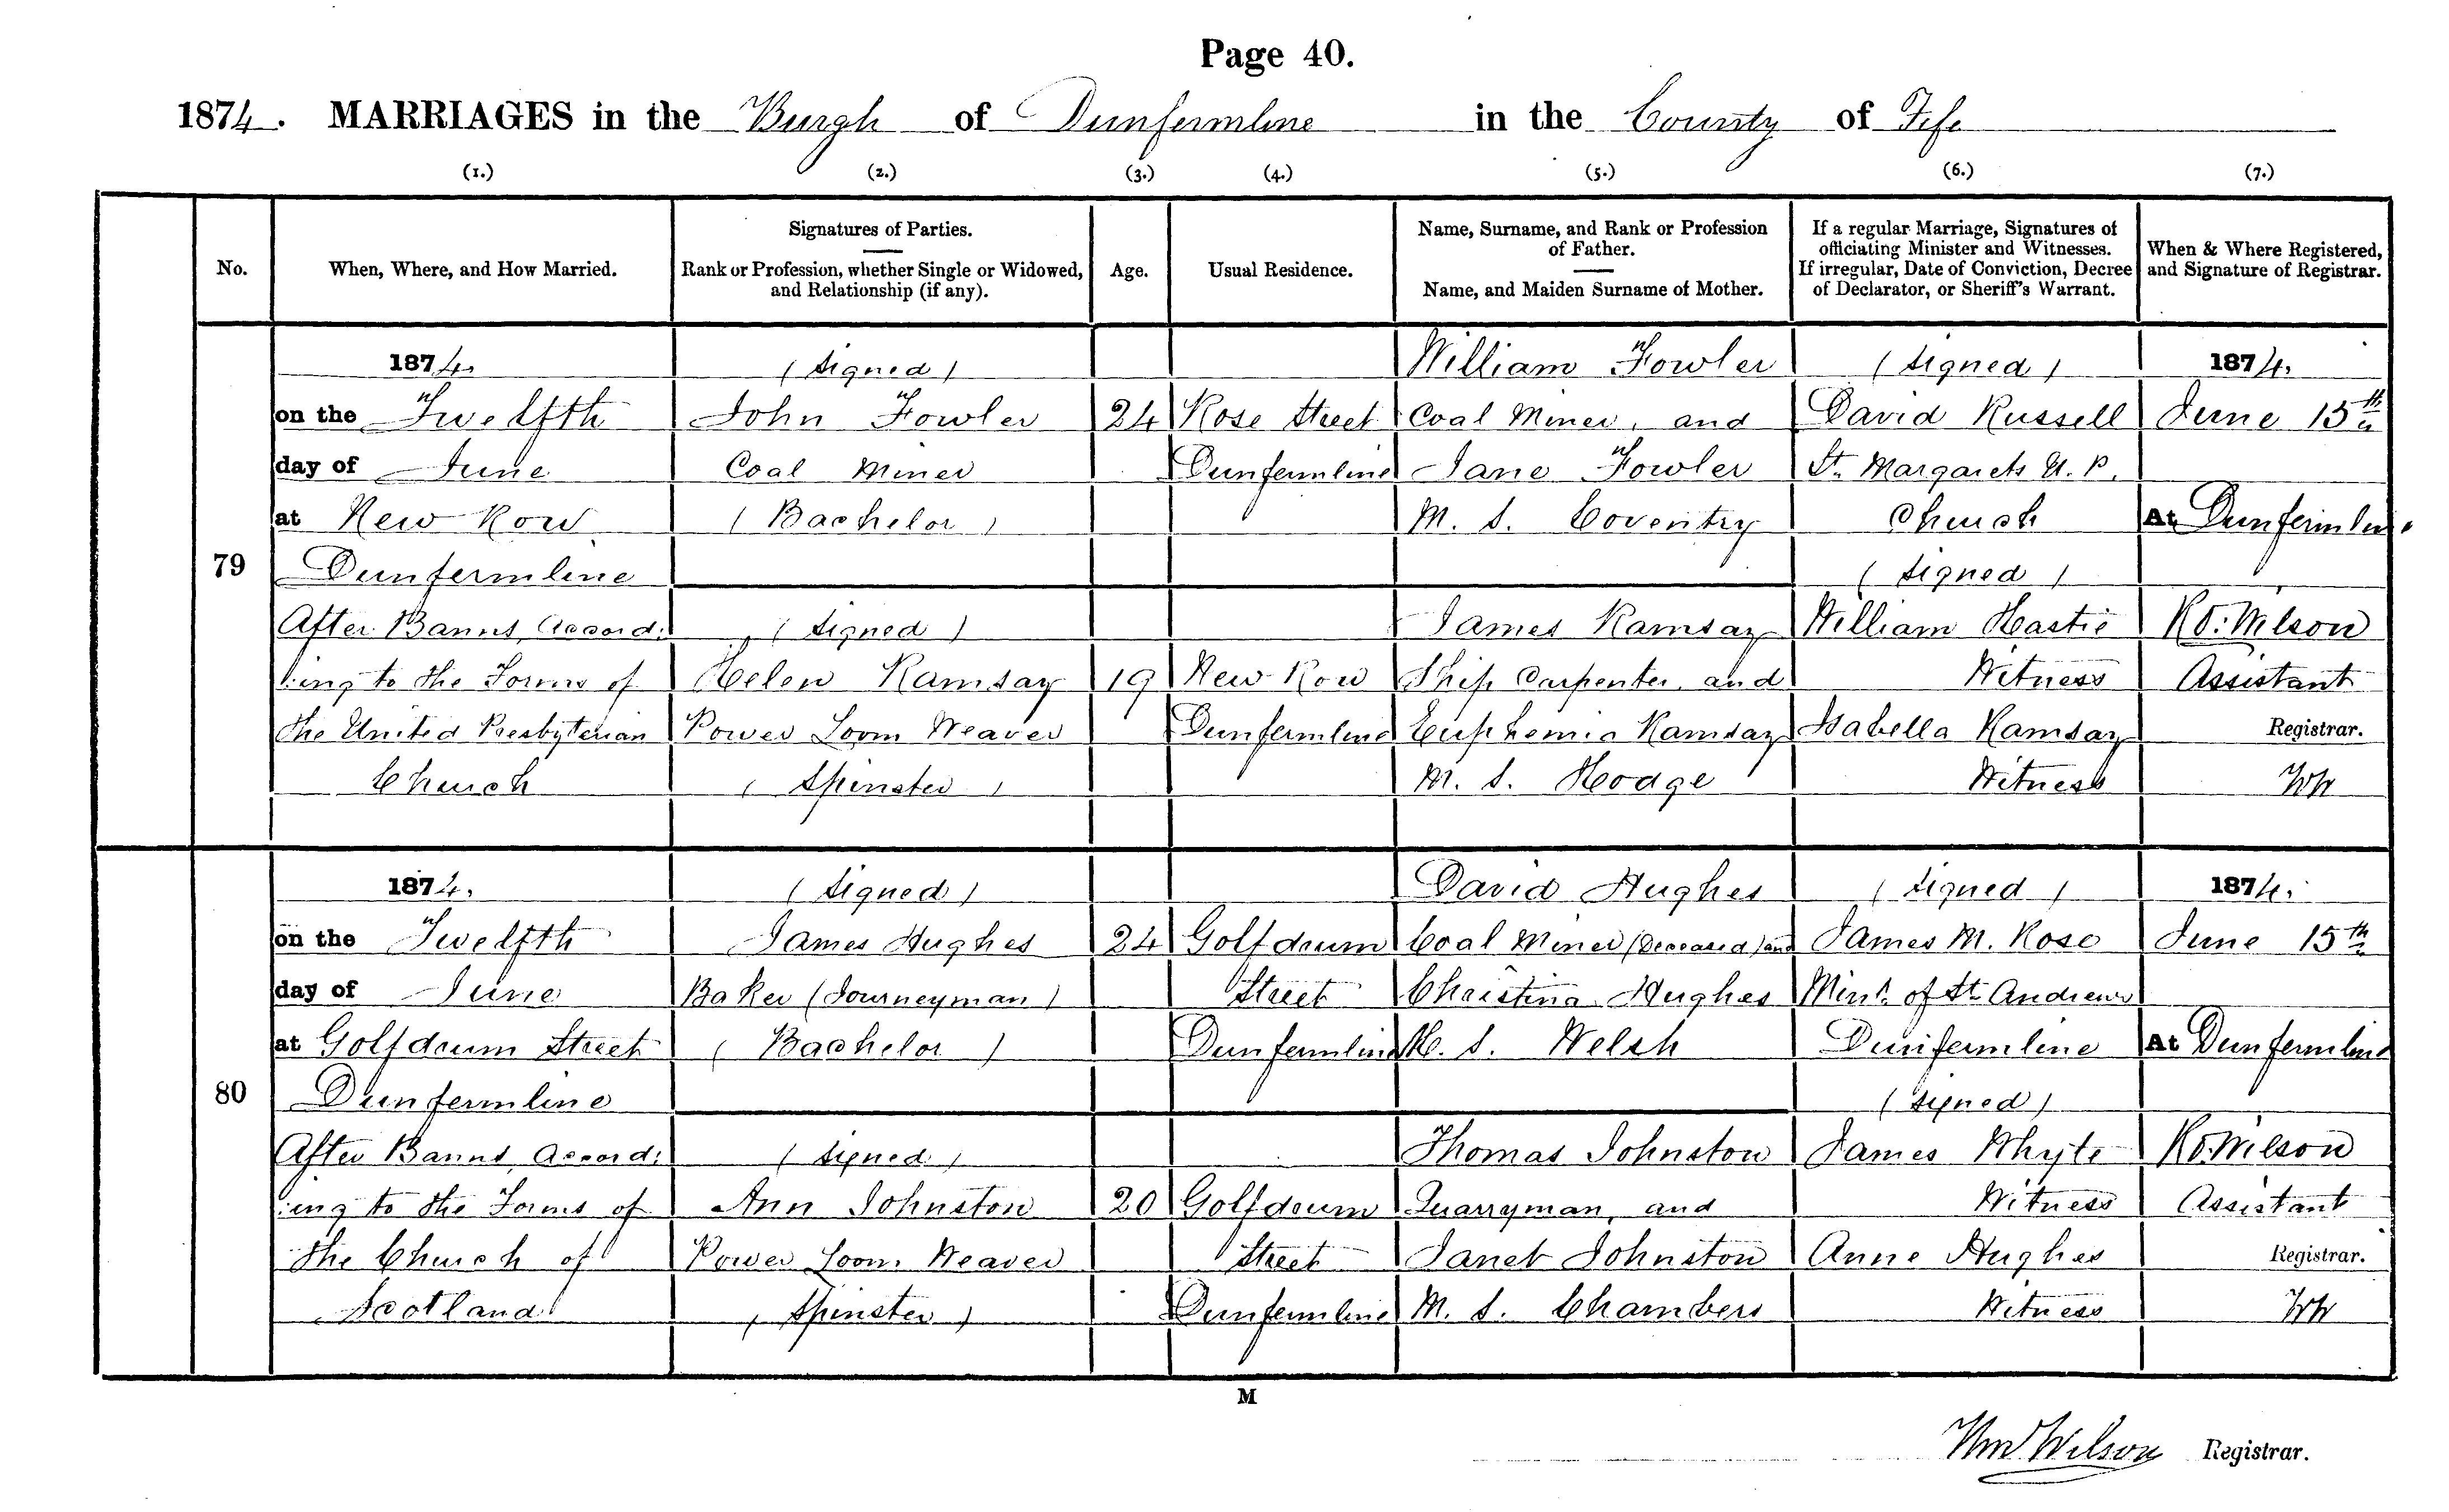 Page 40.
1874. MARRIAGES in the Burgh of Dunfermline in the County of Fife
(1.) (2.) (3.) (4.) (5.) (6.) (7.)
No.
When, Where, and How Married.
Signatures of Parties.
Rank or Profession, whether Single or Widowed,
and Relationship (if any).
Age.
Usual Residence.
Name, Surname, and Rank or Profession
of Father.
Name, and Maiden Surname of Mother.
If a regular Marriage, Signatures of
officiating Minister and Witnesses.
If irregular, Date of Conviction, Decree
of Declarator, or Sheriff's Warrant.
When & Where Registered,
and Signature of Registrar.
79
1874.
on the Twelfth
day of June
at New Row
Dunfermline
After Banns, Accord:
:ing to the Forms of
the United Presbyterian
Church
(Signed)
John Fowler
Coal Miner
(Bachelor)
(Signed)
Helen Ramsay
Power Loom Weaver
(Spinster)
24
19
Rose Street
Dunfermline
New Row
Dunfermline
William Fowler
Coal Miner, and
Jane Fowler
M. S. Coventry
James Ramsay
Ship Carpenter, and
Euphemia Ramsay
M. S. Hodge
(Signed)
David Russell
St. Margarets U. P.
Church
(Signed)
William Hastie
Witness
Isabella Ramsay
Witness
1874.
June 15th
At Dunfermline
Ro. Wilson
Assistant
Registrar.
WW
80
1874.
on the Twelfth
day of June
at Golfdrum Street
Dunfermline
After Banns, Accord:
:ing to the Forms of
the Church of
Scotland
(Signed)
James Hughes
Baker (Journeyman)
(Bachelor)
(Signed)
Ann Johnston
Power Loom Weaver
(Spinster)
24
20
Golfdrum
Street
Dunfermline
Golfdrum
Street
Dunfermline
David Hughes
Coal Miner (Deceased) and
Christina Hughes
M. S. Welsh
Thomas Johnston
Quarryman, and
Janet Johnston
M. S. Chambers
(Signed)
James M. Rose
Minr. of St. Andrews
Dunfermline
(Signed)
James Whyte
Witness
Anne Hughes
Witness
1874.
June 15th
At Dunfermline
Ro. Wilson
Assistant
Registrar.
WW
M
Wm Wilson Registrar.